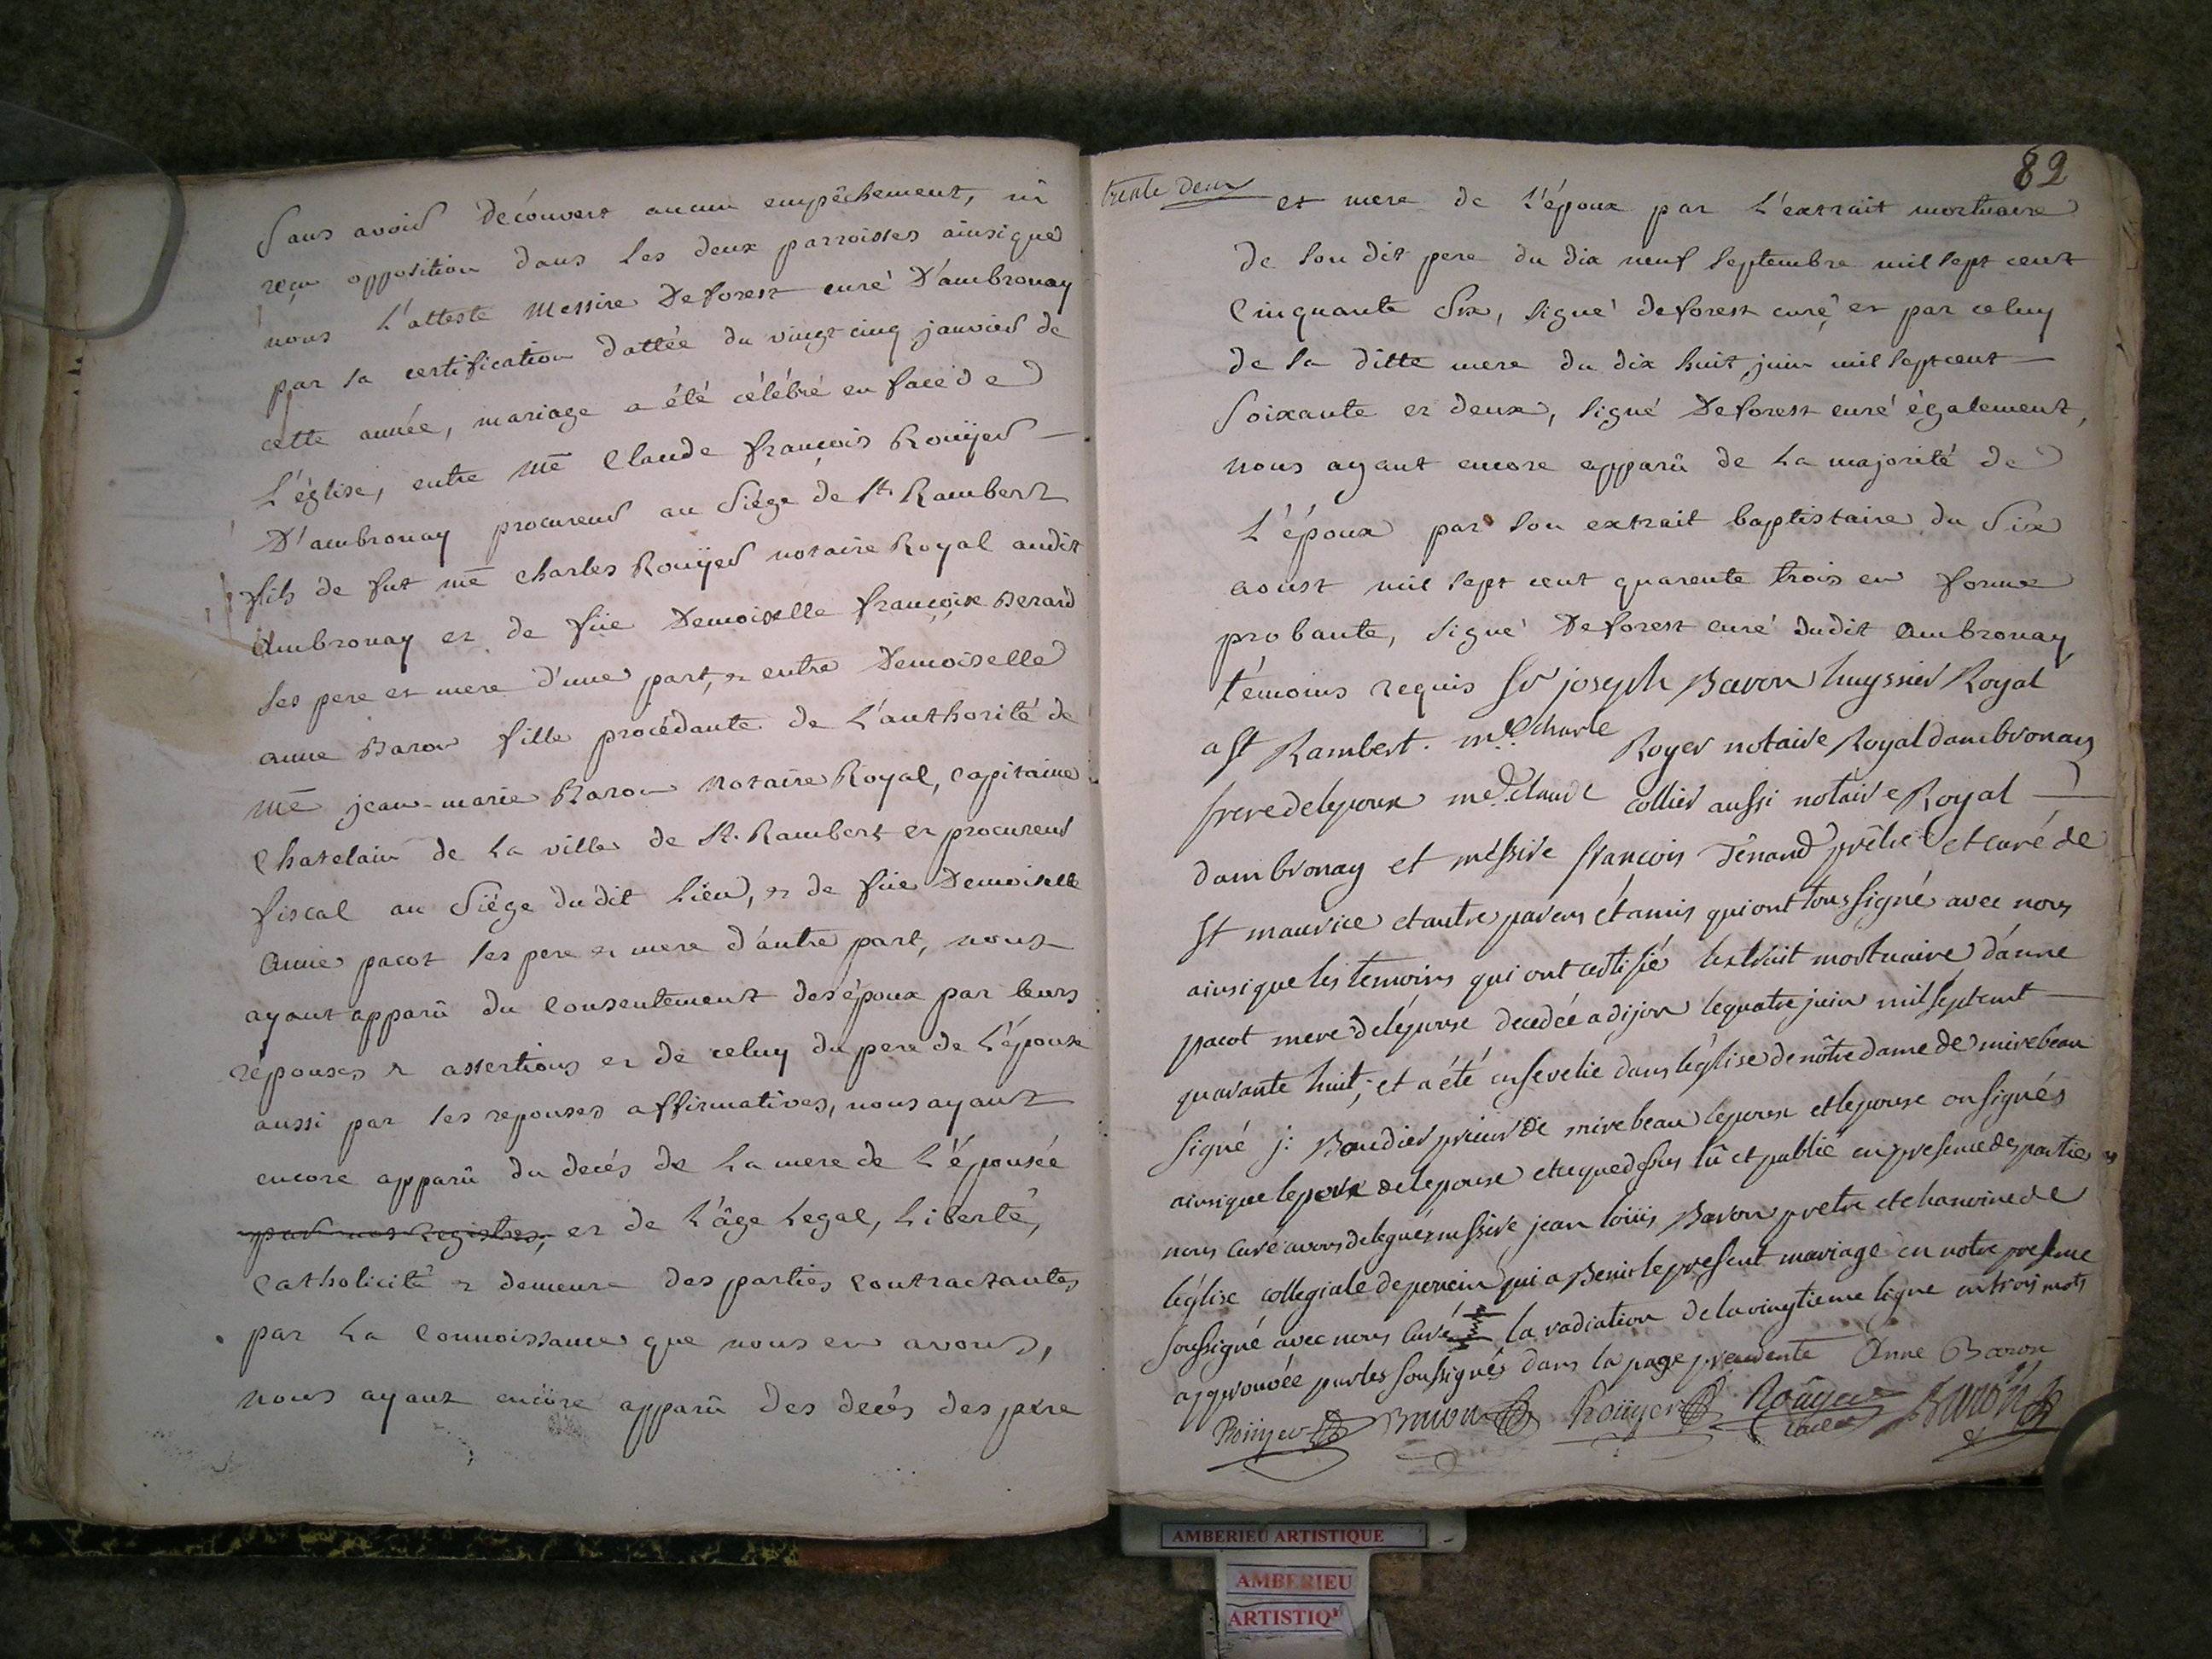 Sans avoir découvert aucun empêchement, ni
reçu opposition dans les deux parroisses ainsique
nous l'atteste Messire Deforest curé D'ambronay
par sa certification dattée du vingt cinq janvier de
cette année, mariage a été célébré en face de
L'église, entre Me Claude françois Roüyer
D'ambronay procureur au Siége de St. Rambert
fils de fut me charles Roüyer notaire Royal audit
Ambronay et de füe Demoiselle françoise Berard
ses pere et mere d'une part, et entre Demoiselle
anne Baron fille procédante de L'authorité de
Me jean-marie Baron Notaire Royal, Capitaine
Chatelain de la ville de St. Rambert et procureur
fiscal au Siége dudit lieu, et de füe Demoiselle
Anne pacot ses pere et mere d'autre part, nous
ayant apparû du Consentement des époux par leurs
réponses et assertions et de celuy du pere de L'épouse
aussi par ses reponses affirmatives, nous ayant
encore apparû du decés de la mere de L'épousée
par nos Registres, et de L'âge Legal, Liberté,
Catholicité et demeure des parties Contractantes
par la Connoissance que nous en avons,
nous ayant encore apparû des decés des pere
82
trente deux
et mere de L'époux par L'extrait mortuaire
de son dit pere du dix neuf septembre mil sept cent
Cinquante Six, signé deforest curé, et par celuy
de sa ditte mere du dix huit juin mil sept cent
Soixante et deux, signé Deforest curé également,
nous ayant encore apparû de la majorité de
L'époux par son extrait baptistaire du Six
aoust mil sept cent quarente trois en forme
probante, signé Deforest curé dudit Ambronay
témoins requis Sr joseph Baron huyssier Royal
a St Rambert. me charle Royer notaire Royal dambronay
frere delepoux me claude collier aussi notaire Royal
dambronay et messire françois Tênand prêtre et curé de
St maurice et autre parens et amis qui ont tous signé avec nous
ainsi que les temoins qui ont certifié lextrait mortuaire d'anne
pacot mere de lépouse decedée a dijon le quatre juin mil sept cent
quarante huit, et a été ensevelie dans léglise de nôtre dame de mirebeau
signé j: Baudier prieur de mirebeau lepoux et lepouse on signés
ainsique lepere de lepouse et ceque dessus lû et publié en presence des parties
nous curé avons delegué messire jean loüis Baron pretre et chanoine de
léglise collegiale de poncin qui a Benit le present mariage en notre presence
soussigné avec nous curé la radiation de la vingtieme ligne en trois mots
approuvée par les soussignés dans la page precedente Anne Baron
Roüyer Baron Roüyer Roüyer Baron
AMBERIEU ARTISTIQUE
AMBERIEU
ARTISTIQ